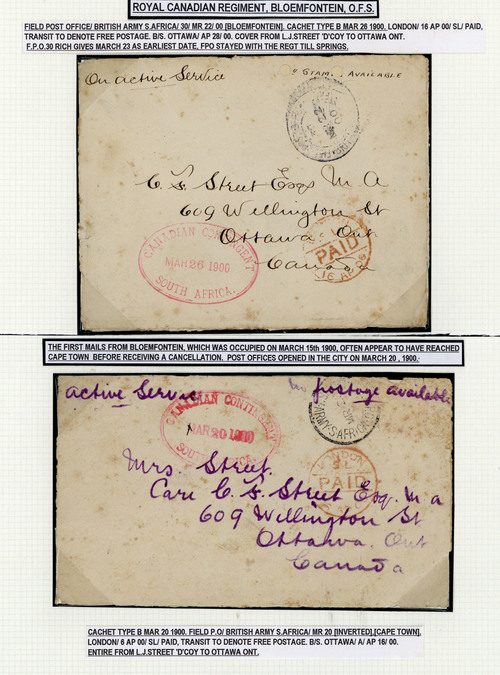 ROYAL CANADIAN REGIMENT, BLOEMFONTEIN, O.F.S.
FIELD POST OFFICE/ BRITISH ARMY S.AFRICA/ 30/ MR 22/ 00 [BLOEMFONTEIN]. CACHET TYPE B MAR 26 1900, LONDON/ 16 AP 00/ SL/ PAID,
TRANSIT TO DENOTE FREE POSTAGE. B/S. OTTAWA/ AP 28/ 00. COVER FROM L.J.STREET 'D'COY TO OTTAWA ONT.
F.P.O.30 RICH GIVES MARCH 23 AS EARLIEST DATE, FPO STAYED WITH THE REGT TILL SPRINGS.
On active Service
available
C. F. Street Esq M A
609 Wellington St
Ottawa Ont
Canada
CANADIAN CONTINGENT
MAR 26 1900
SOUTH AFRICA.
PAID
16 AP 00
THE FIRST MAILS FROM BLOEMFONTEIN, WHICH WAS OCCUPIED ON MARCH 15th 1900, OFTEN APPEAR TO HAVE REACHED
CAPE TOWN BEFORE RECEIVING A CANCELLATION. POST OFFICES OPENED IN THE CITY ON MARCH 20 , 1900.
active Service
no postage available
CANADIAN CONTINGENT
MAR 20 1900
SOUTH AFRICA.
ARMY S.AFRICA
LONDON
S.L.
PAID
Mrs. Street.
Care C. F. Street Esq. M a
609 Wellington St
Ottawa. Ont
Canada
CACHET TYPE B MAR 20 1900. FIELD P.O/ BRITISH ARMY S.AFRICA/ MR 20 [INVERTED],[CAPE TOWN],
LONDON/ 6 AP 00/ SL/ PAID, TRANSIT TO DENOTE FREE POSTAGE. B/S. OTTAWA/ A/ AP 16/ 00.
ENTIRE FROM L.J.STREET 'D'COY TO OTTAWA ONT.